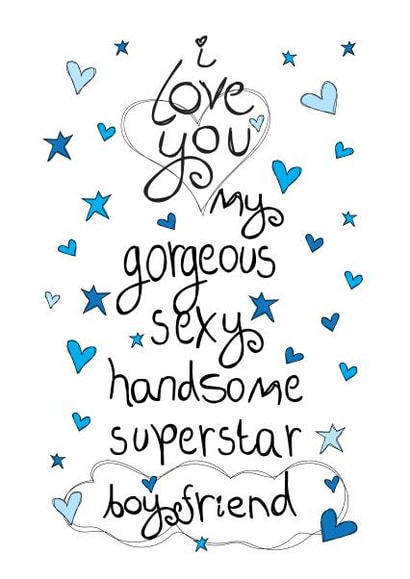 i
love
you
my
gorgeous
sexy
handsome
superstar
boyfriend